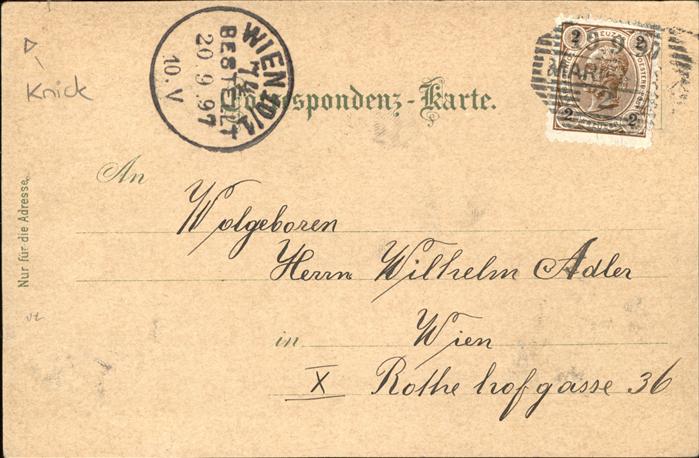 Knick
WIEN 10/1
74
BESTELLT
20.9.97
10.V
2 2
2 2
Correspondenz-Karte.
Nur für die Adresse
An
Wolgeboren
Herrn Wilhelm Adler
in Wien
X Rothe hofgasse 36